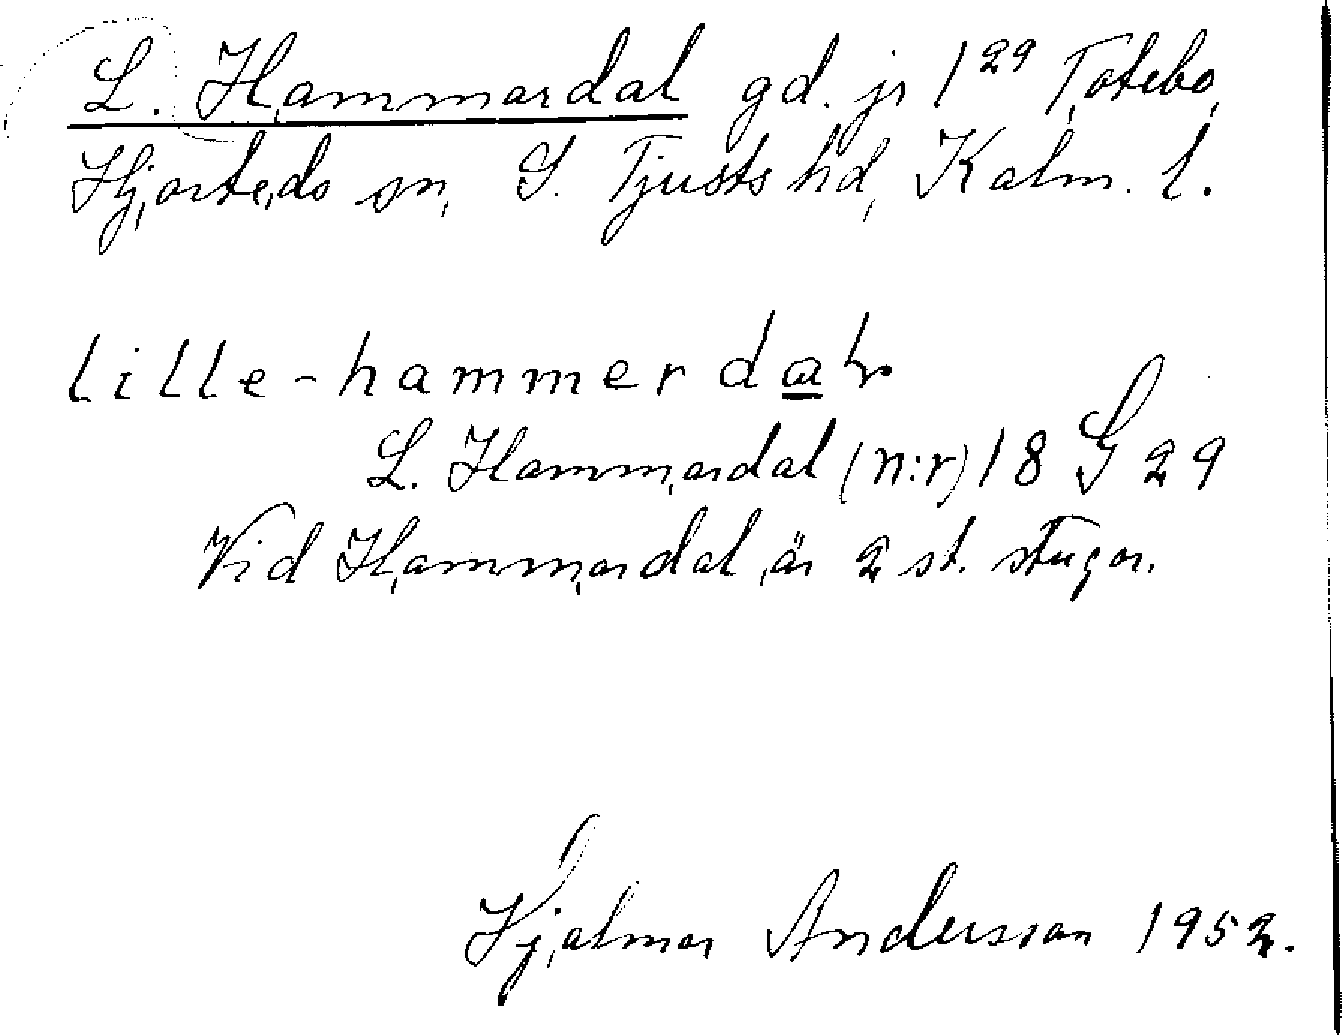 L. Hammardal gd. jr 1²⁹ Totebo,
Hjorteds sn, S. Tjusts hd, Kalm. l.
lille-hammerdal
L. Hammardal (n:r) 18 G 29
Vid Hammardal är 2 st. stugor.
Hjalmar Andersson 1952.